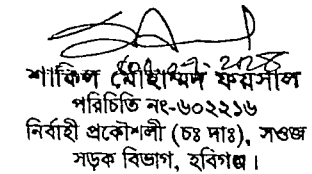 শাকিল মোহাম্মদ ফয়সাল
পরিচিতি নং-৬০২২১৬
নির্বাহী প্রকৌশলী (চঃ দাঃ), সওজ
সড়ক বিভাগ, হবিগঞ্জ।